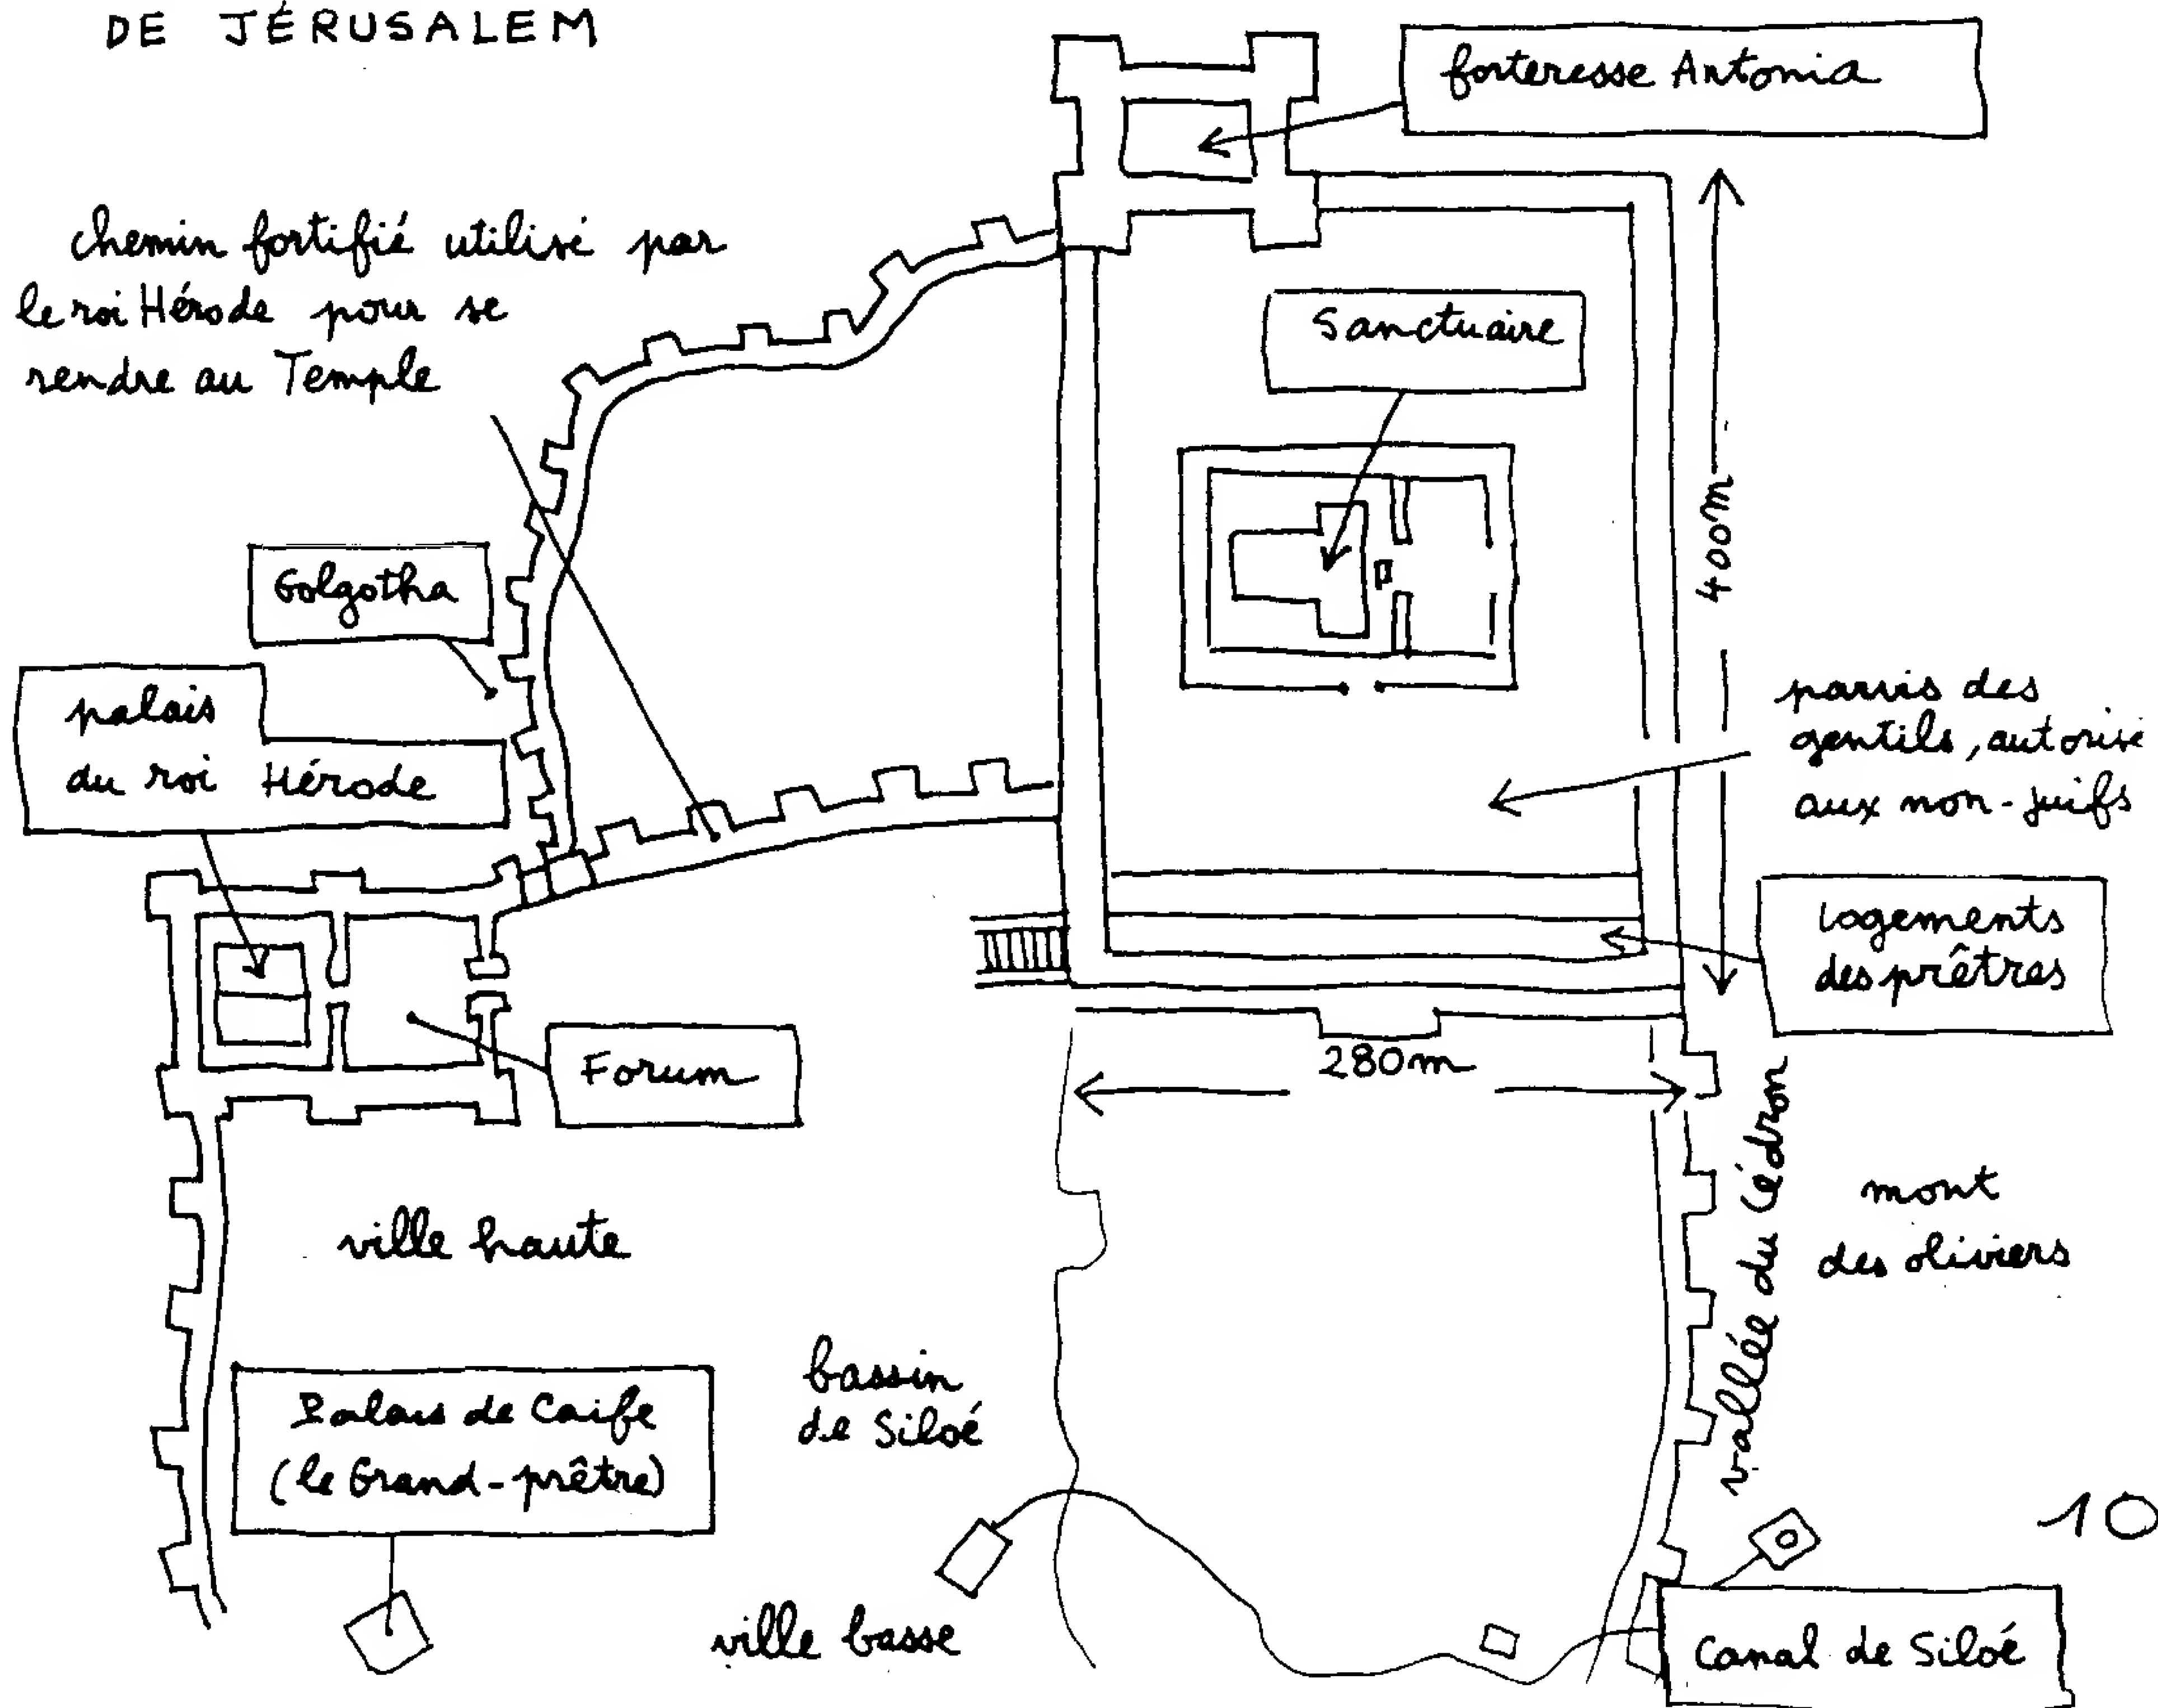 DE JÉRUSALEM
forteresse Antonia
chemin fortifié utilisé par
le roi Hérode pour se
rendre au Temple
Sanctuaire
400m
Golgotha
palais
du roi Hérode
parvis des
gentils, autorisé
aux non-juifs
Logements
des prêtres
Forum
280m
vallée du Cédron
mont
des oliviers
ville haute
bassin
de Siloé
Palais de Caife
(le Grand-prêtre)
10
ville basse
Canal de Siloé